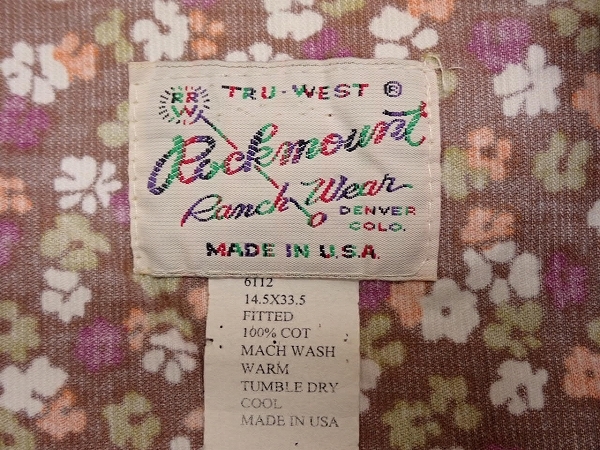 RR
W
TRU-WEST ®
Rockmount
Ranch Wear
DENVER
COLO.
MADE IN U.S.A.
6112
14.5X33.5
FITTED
100% COT
MACH WASH
WARM
TUMBLE DRY
COOL
MADE IN USA